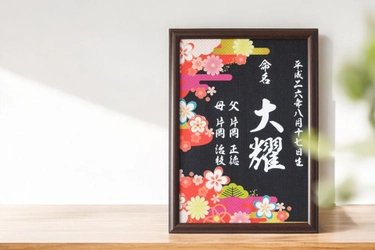 平成二六年八月十七日生
命名
大耀
父 片岡 正徳
母 片岡 治枝